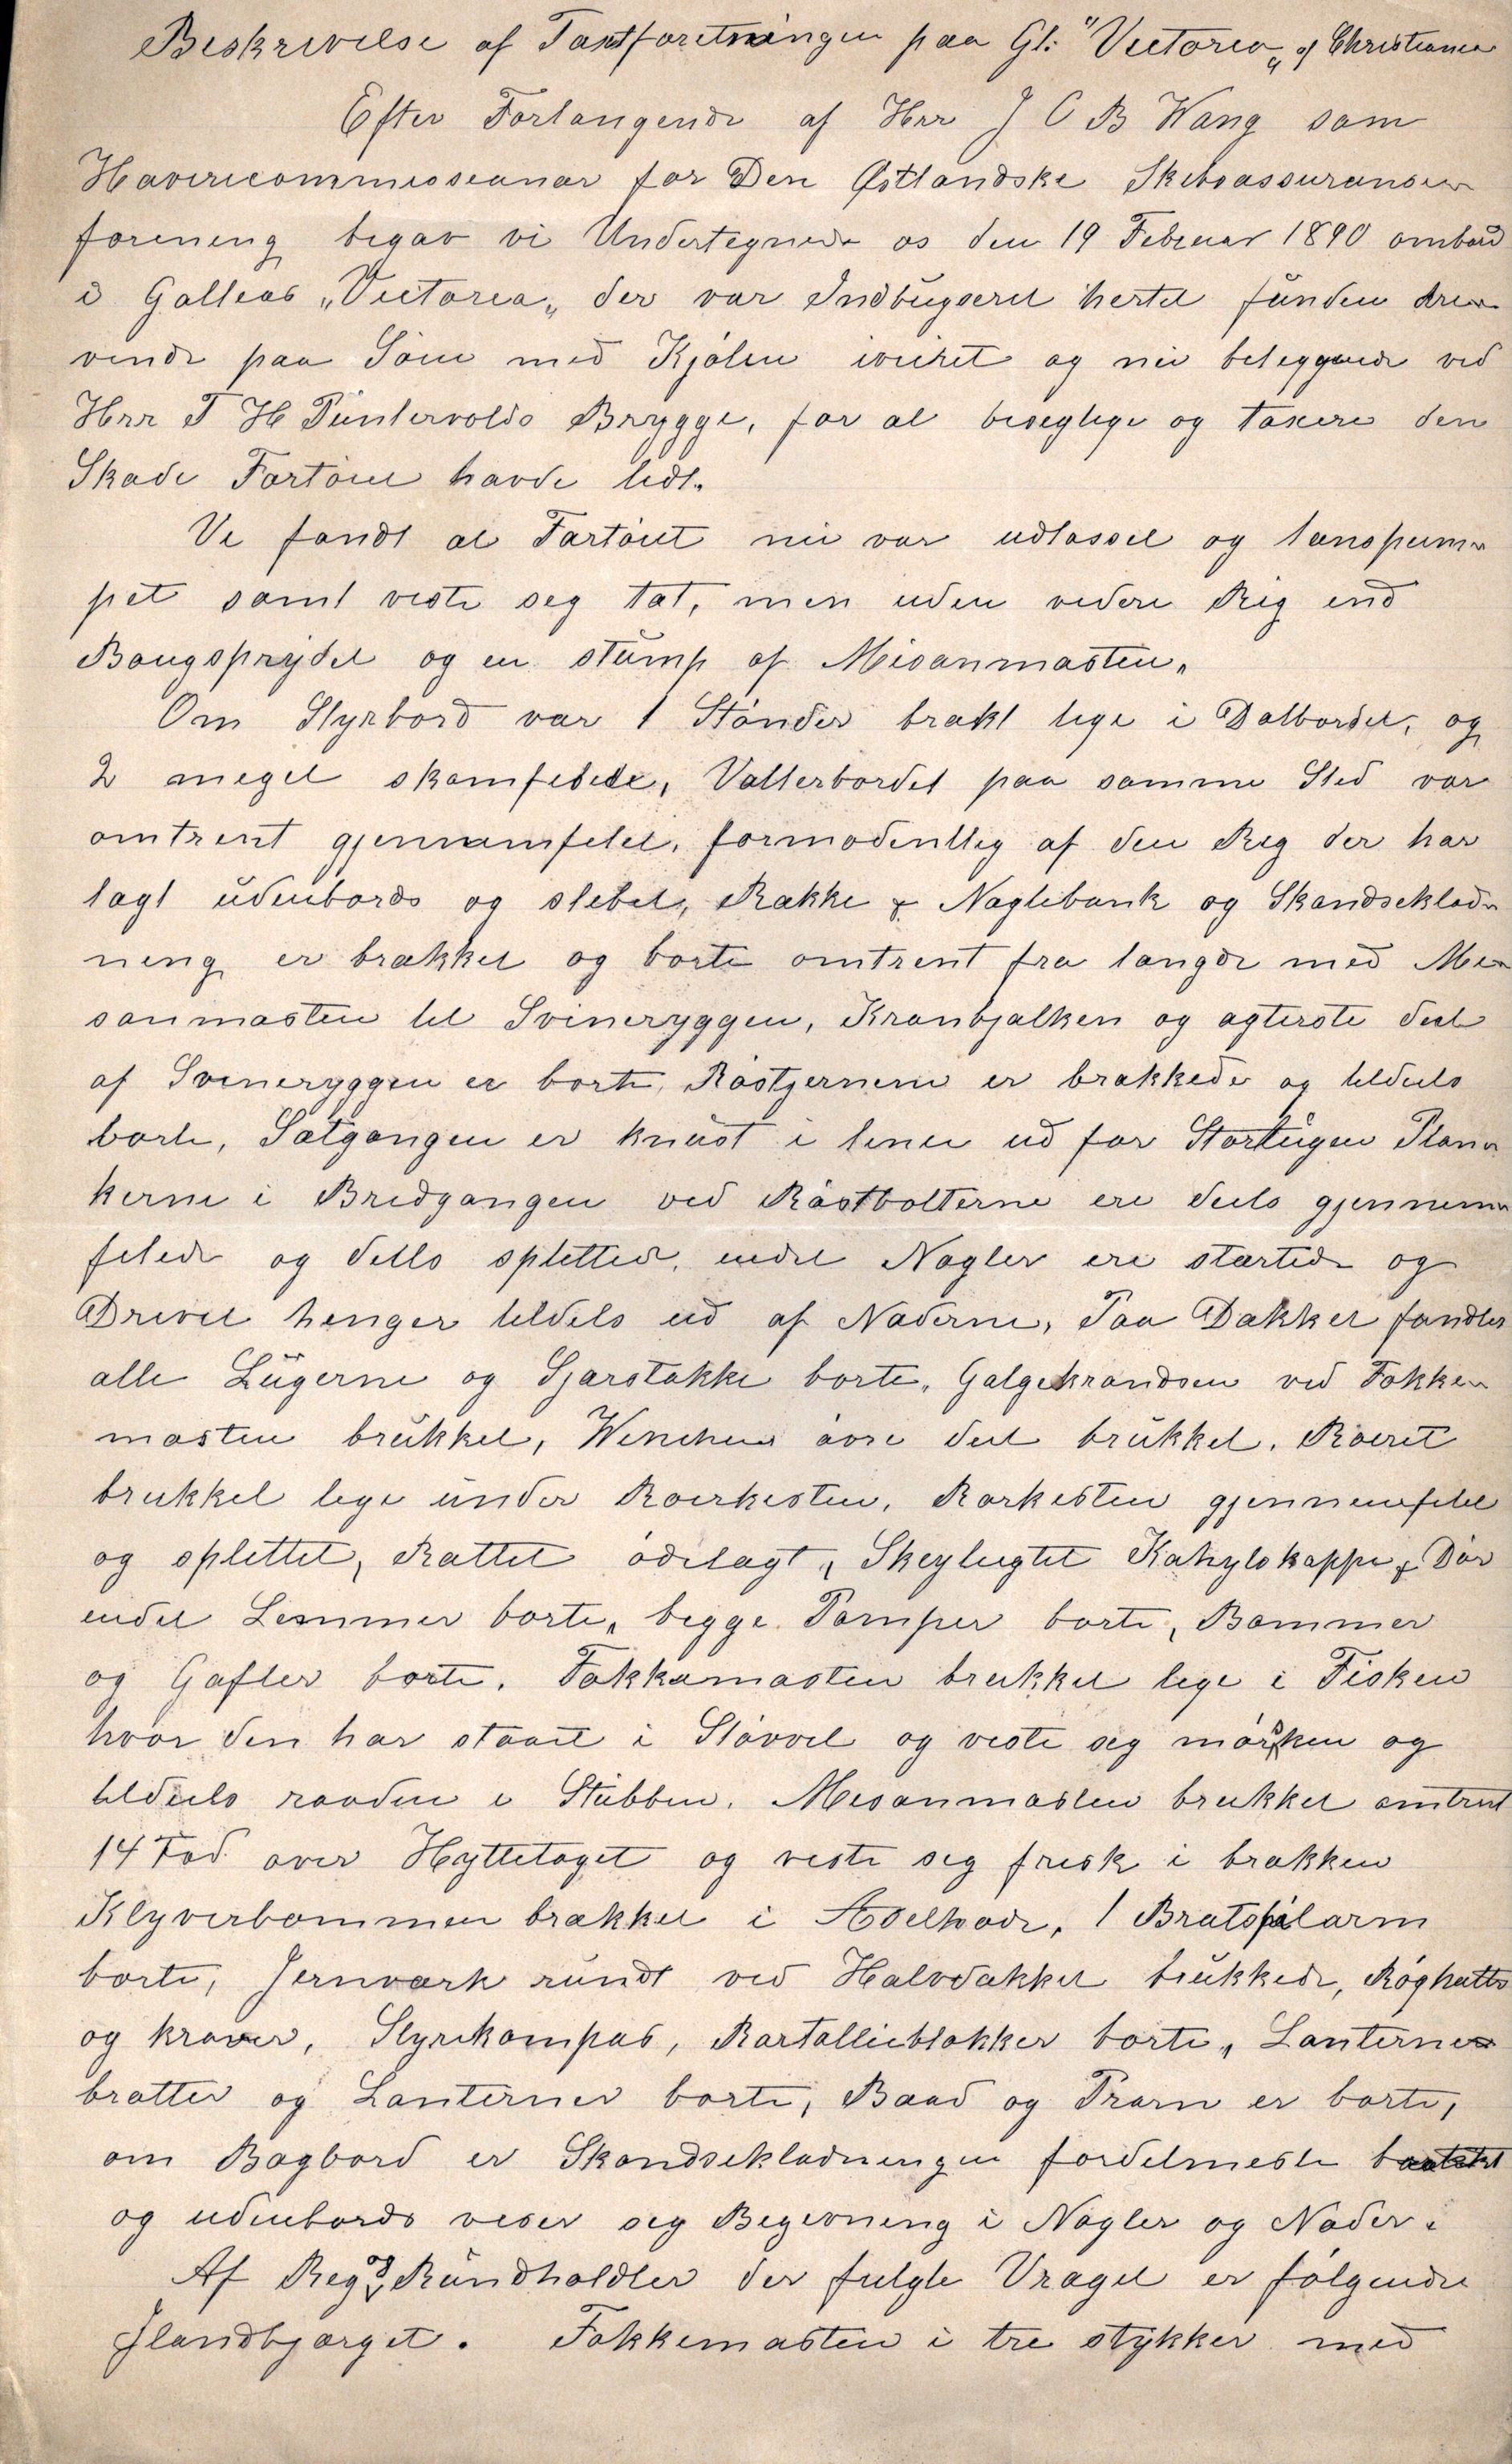 Beskrivelse af Taxtforetningen paa Gl: "Victoria" af Christiania
Efter Forlangende af Herr J C B Wang som
Havericommissionær for Den Østlandske Skibsassurance
forening begav vi Undertegnede os den 19 Februar 1890 ombord
i Galleas "Victoria" der var Indbugseret hertil funden dre-
vende paa Søen med Kjølen iveiret og nu beliggende ved
Herr T H Püntervolds Brygge, for at besegtige og taxere den
Skade Fartøiet havde lidt.
Vi fandt at Fartøiet nu var udlosset og lænspum-
pet samt viste seg tæt, men uden videre Rig end
Baugsprydet og en stump af Mesanmasten.
Om Styrbord var 1 Stønder brækt lige i Dolbordet, og
2 meget skamfelede, Vatterbordet paa samme Sted var
omtrent gjennemfelet, formodentlig af den Rig der har
lagt udenbords og slebet, Række & Naglebænk og Skandseklæd-
ning er brækket og borte omtrent fra langde med Me-
sanmasten til Svineryggen, Kranbjalken og agterste deel
af Svineryggen er borte, Røstjernene er brækkede og tildeels
borte, Satgangen er knust i lenu ud for Stortugen Plan-
kerne i Bredgangen ved Røstbolterne ere deels gjennem-
felede og deels splettede, endel Nagler ere startede og
Drevet henger teldels ud af Naderne, Paa Dækket fandtes
alle Lugerne og Sjærstokke borte, Galgekrandsen ved Fokke-
masten brukket, Winchens øvre deel brukket. Roeret
brukket lige under Roerkisten, Rorkisten gjennemfelet
og splettet, Rattet ødelagt, Skeylugtet Kahytskappe & Dør
endel Lemmer borte, begge Pomper borte, Bommer
og Gafler borte. Fokkemasten brukket lige i Fisken
hvor den har staaet i Støvvel og viste seg mørken og
tildeels raadden i Stubben. Mesanmasten brukket omtrent
14 Fod over Hyttetaget og viste seg frisk i brækken
Klyverbommen brækket i Æselhode, 1 Bratspilarm
borte, Jernværk rundt ved Halvdækket brukkede, Røghatte
og kraver, Styrekompas, Rortallieblokker borte, Lanterne-
bratter og Lanterner borte, Baad og Pram er borte,
om Bagbord er Skandseklædningen fordetmeste
og udenbords viser seg Begivning i Nagler og Nader.
Af Rig og Rundholdter der fulgte Vraget er følgende
Ilandbjærget. Fokkemasten i tre stykker med